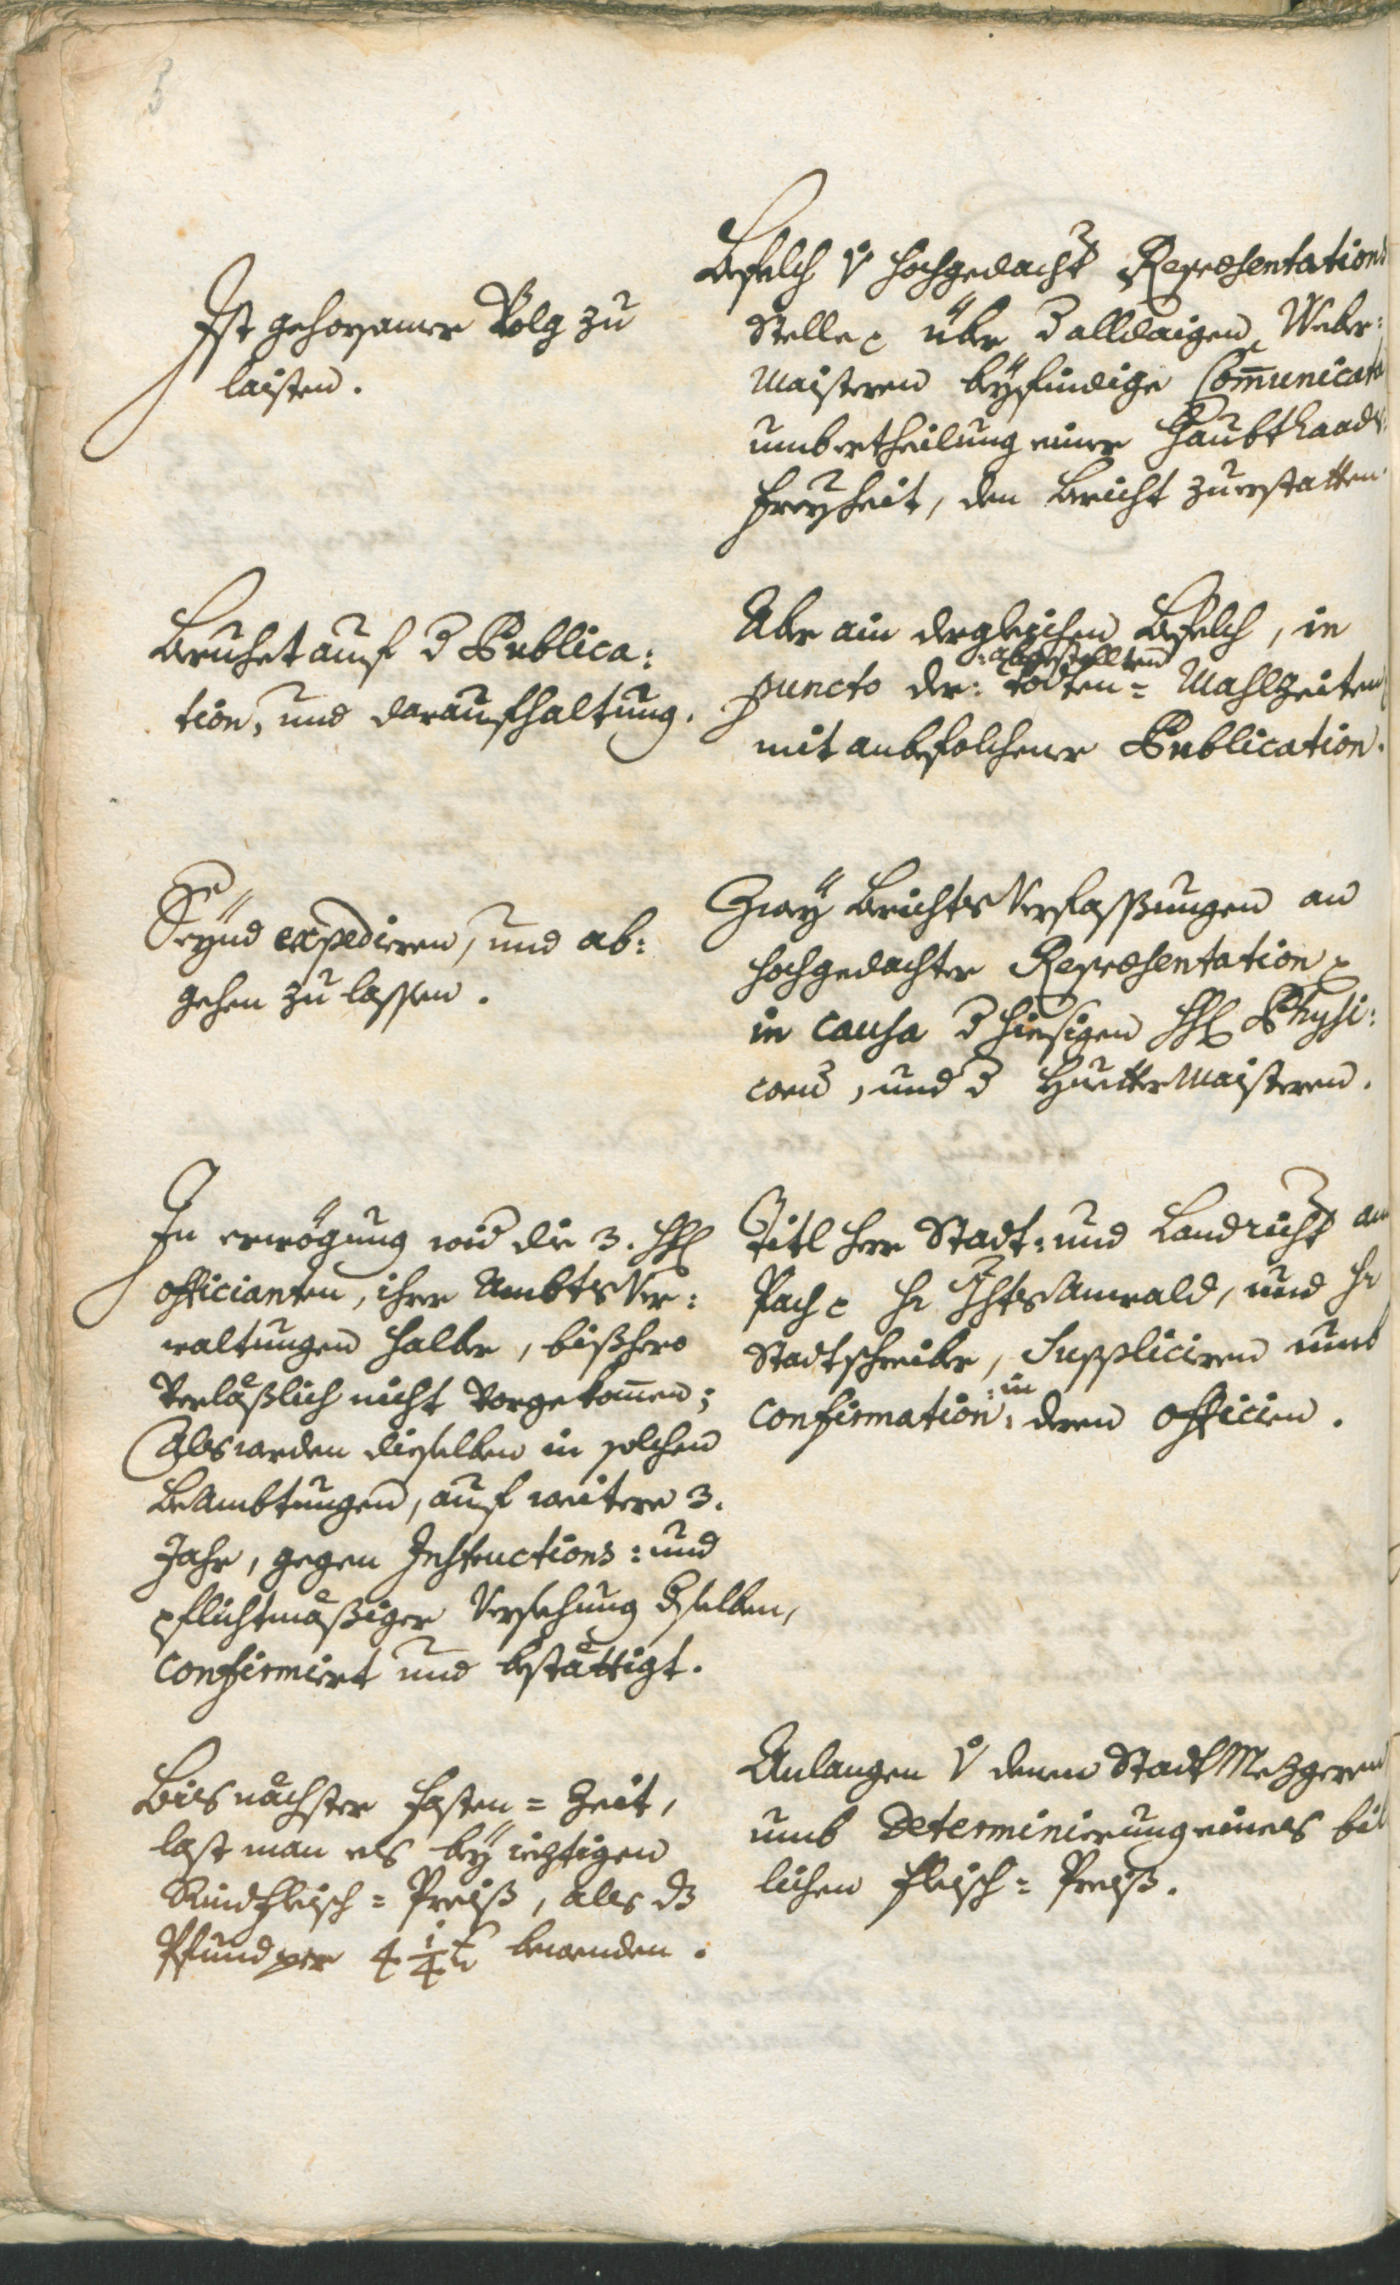 5
Befelch v. hochgedacht Repræsentations
Stelle über d alldaigen Weber-
Maisteren beyfindige Communicata
umb ertheilung einer Haubtlaads
freyheit, den Bericht zuerstatten.
Ist gehorsamer Volg zu
laisten.
Aber ain dergleichen Befelch, in
puncto der: :abgestellten
todten= Mahlzeiten
mit anbefolchener Publication.
Beruhet auf d Publica:
tion, und daraufhaltung.
Zwey Berichts Verfassungen an
hochgedachte Repræsentation
in causa d hiesigen HH Physi:
corum, und d HuetterMaisteren.
Seynd expedieren, und ab:
gehen zu lassen.
Titl Herr Stadt: und Landricht an
Pach Hr Anwald, und Hr
Stadtschreiber, Suppliciren umb
Confirmation: :in deren officien.
In erwögung wid die 3. HH
officianten, ihrer Ambts Ver:
waltungen halber, bißhero
Verläßlich nicht Vorgekommen;
Als werden dieselben in solchen
Beambtungen, auf weitere 3.
Jahr, gegen Instructions: und
pflichtmäßiger Versehung dselben,
confirmiert und bestättigt.
Anlangen v. denen Stadt Mezgeren
umb Determinierung eines bil
lichen Fleisch= Preiß.
Bis nächster Fasten= Zeit,
last man es bey ieztigen
Rindfleisch= Preiß, als dz
Pfund per 4 1/4 x bewenden.